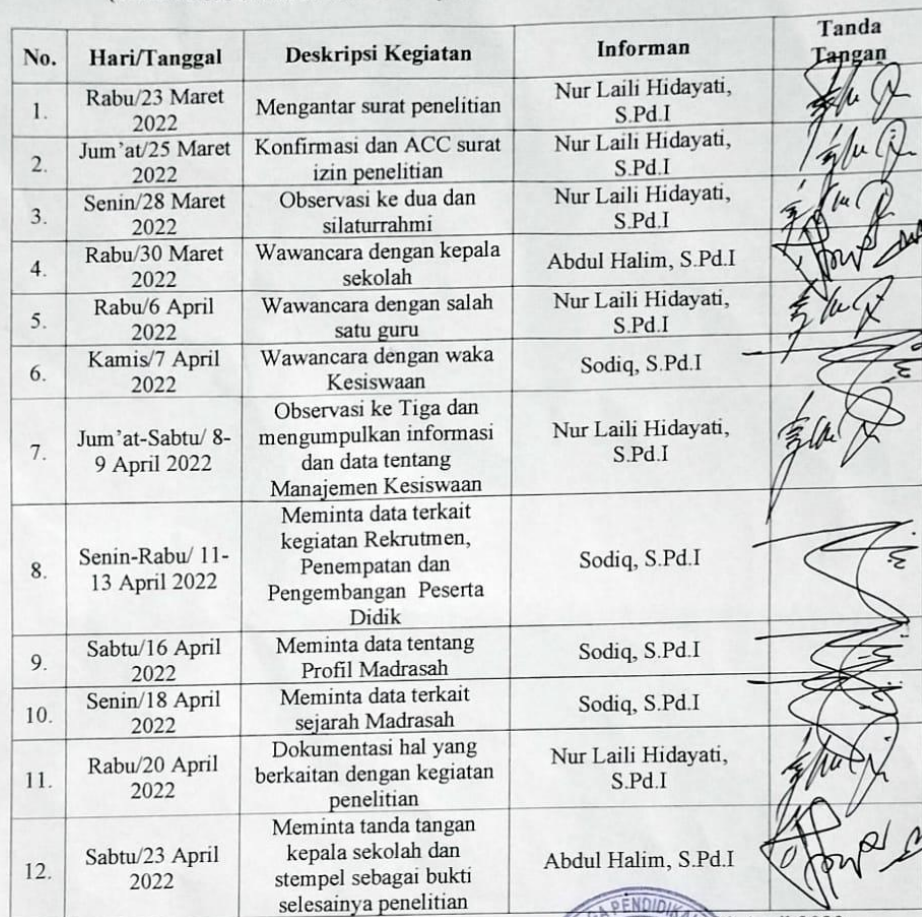 No. Hari/Tanggal Deskripsi Kegiatan Informan Tanda
Tangan
1. Rabu/23 Maret
2022
Mengantar surat penelitian
Nur Laili Hidayati,
S.Pd.I
2. Jum'at/25 Maret
2022
Konfirmasi dan ACC surat
izin penelitian
Nur Laili Hidayati,
S.Pd.I
3. Senin/28 Maret
2022
Observasi ke dua dan
silaturrahmi
Nur Laili Hidayati,
S.Pd.I
4. Rabu/30 Maret
2022
Wawancara dengan kepala
sekolah
Abdul Halim, S.Pd.I
5. Rabu/6 April
2022
Wawancara dengan salah
satu guru
Nur Laili Hidayati,
S.Pd.I
6. Kamis/7 April
2022
Wawancara dengan waka
Kesiswaan
Sodiq, S.Pd.I
7. Jum'at-Sabtu/ 8-
9 April 2022
Observasi ke Tiga dan
mengumpulkan informasi
dan data tentang
Manajemen Kesiswaan
Nur Laili Hidayati,
S.Pd.I
8. Senin-Rabu/ 11-
13 April 2022
Meminta data terkait
kegiatan Rekrutmen,
Penempatan dan
Pengembangan Peserta
Didik
Sodiq, S.Pd.I
9. Sabtu/16 April
2022
Meminta data tentang
Profil Madrasah
Sodiq, S.Pd.I
10. Senin/18 April
2022
Meminta data terkait
sejarah Madrasah
Sodiq, S.Pd.I
11. Rabu/20 April
2022
Dokumentasi hal yang
berkaitan dengan kegiatan
penelitian
Nur Laili Hidayati,
S.Pd.I
12. Sabtu/23 April
2022
Meminta tanda tangan
kepala sekolah dan
stempel sebagai bukti
selesainya penelitian
Abdul Halim, S.Pd.I